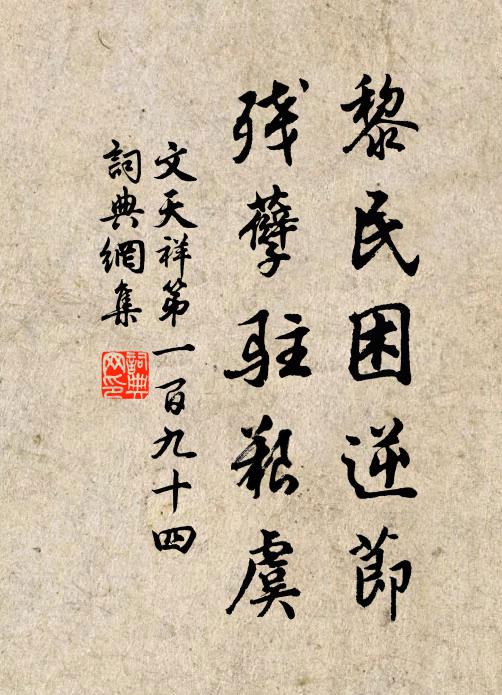 黎民困逆節
残孽駐艱虞
文天祥第一百九十四
詞典網集
詞典
网印